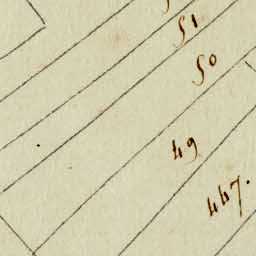 51
50
49
447.